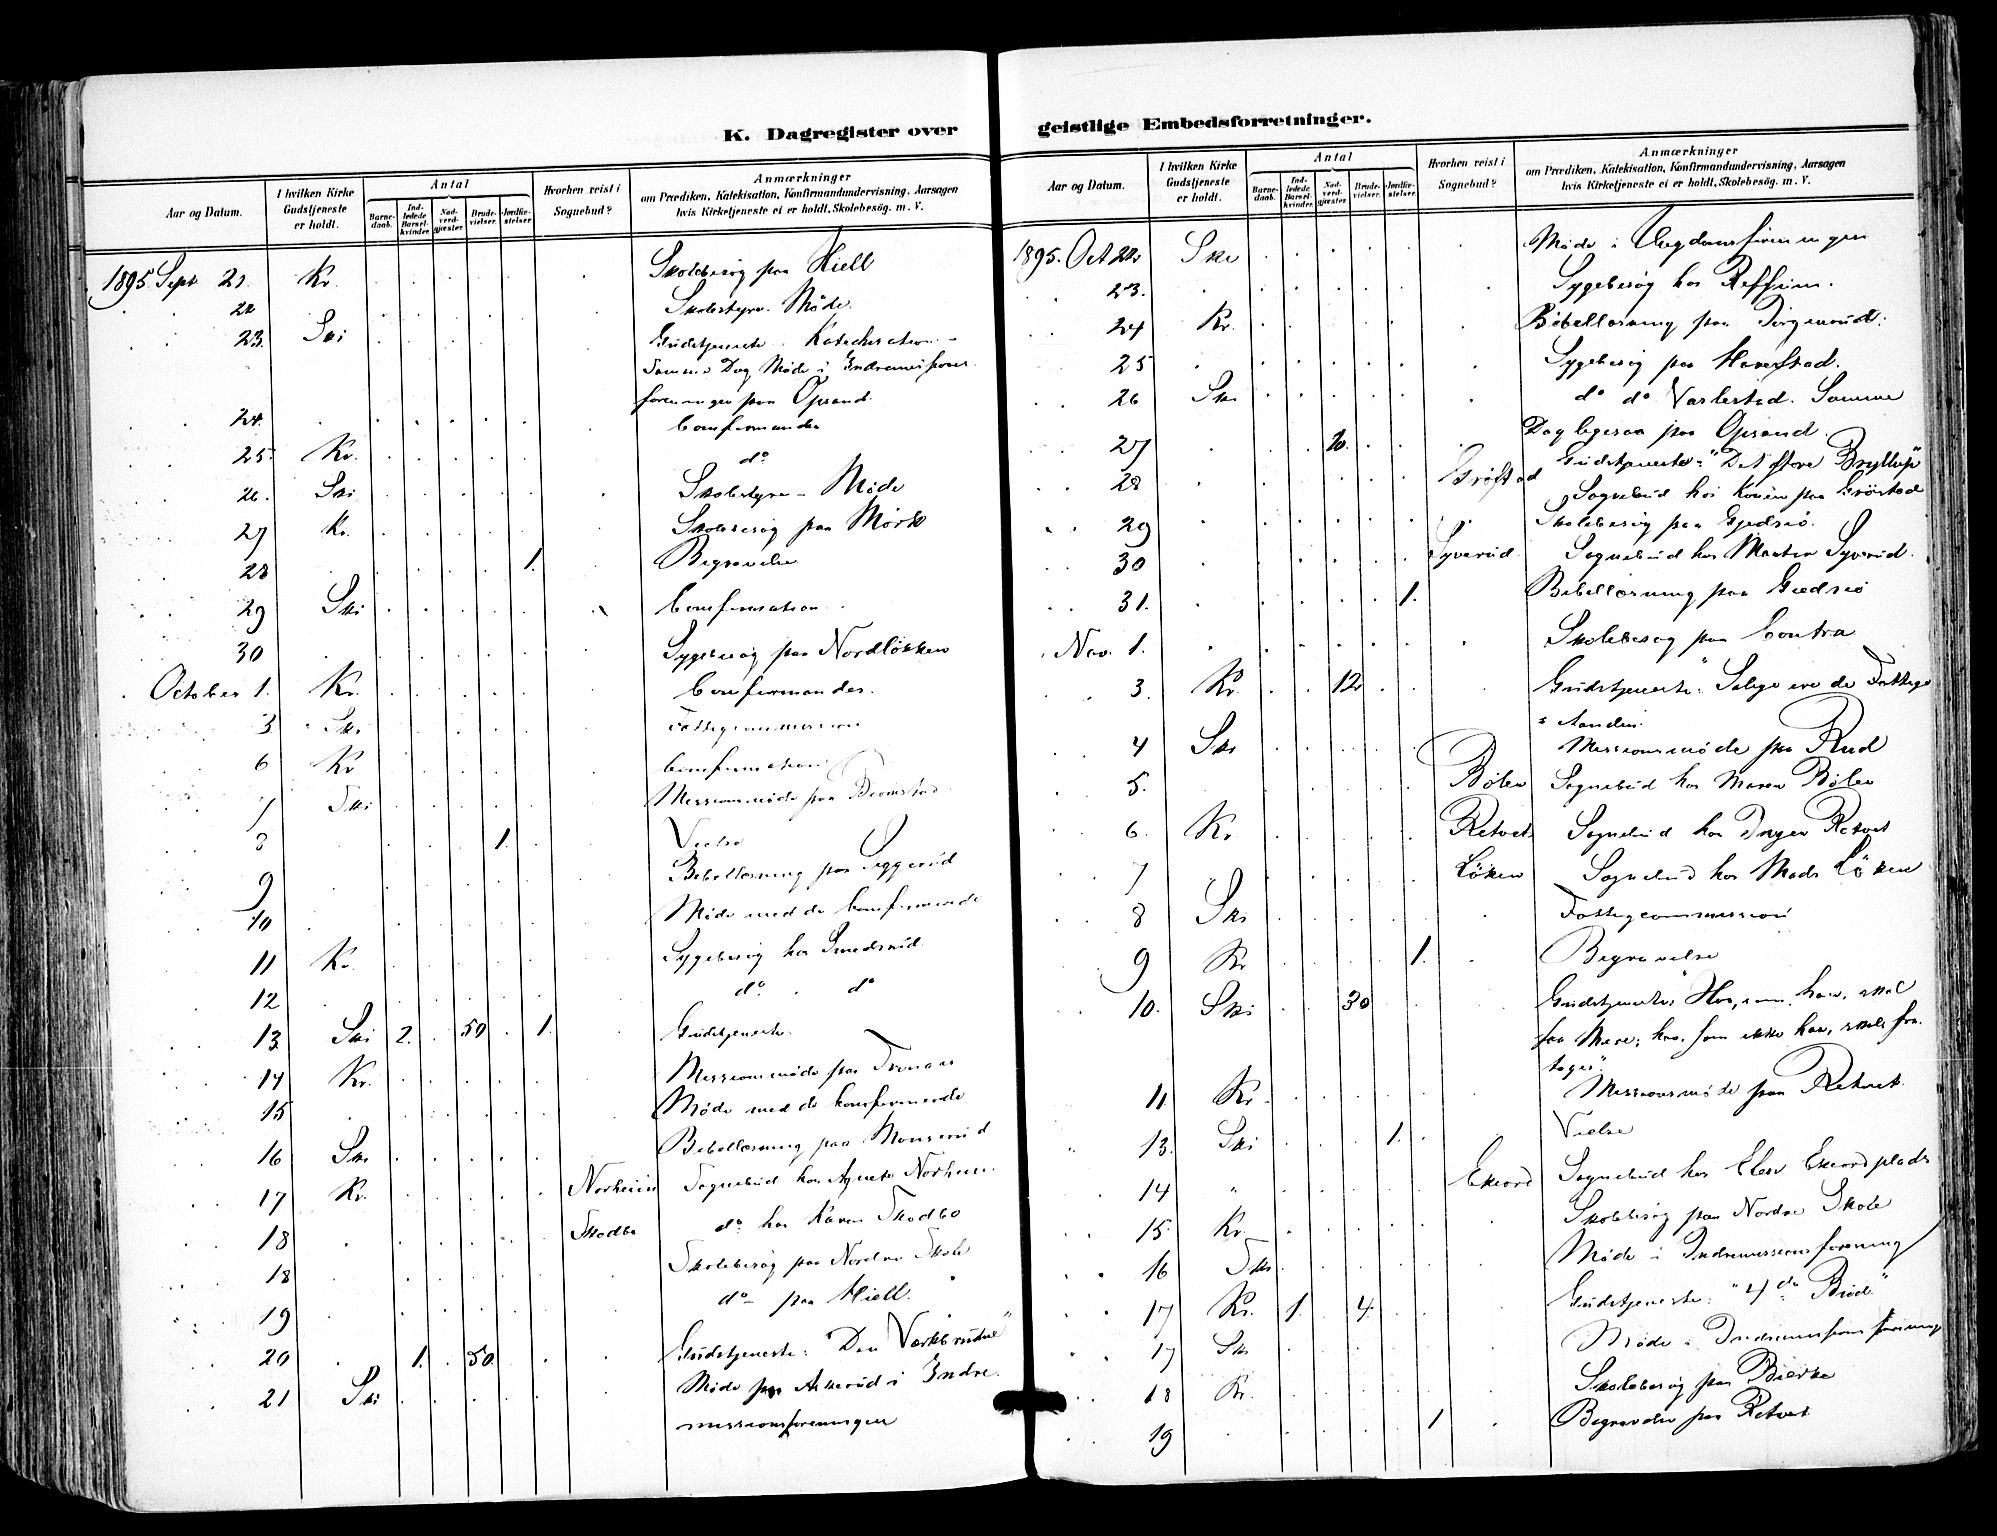 K. Dagregister over
Aar og Datum.
I hvilken Kirke Gudstjeneste er holdt.
Antal
Barnedaab.
Indledede Barselkvinder.
Nadverdgjæster.
Brudevielser.
Jordfæstelser.
Hvorhen reist i Sognebud?
Anmærkninger
om Prædiken, Katekisation, Konfirmandundervisning, Aarsagen
hvis Kirketjeneste ei er holdt, Skolebesøg. m. V.
1895 Sept 21. Kr. Skolebesøg paa Kiell
22 Skolestyre. Møde.
23. Ski Gudstjeneste. Katechisation
Samme Dag Møde i Indremissions
foreningen paa Opsand.
24. Confirmander
25. Kr. do
26. Ski Skolestyre - Møde
27 Kr. Skolebesøg paa Mørk
28 1. Begravelse
29 Ski Confirmation
30 Sygebesøg paa Nordløkken
October 1. Kr. Confirmander.
3 Ski Fattigcommission
6 Kr Confirmation
7 Ski Missionsmøde paa
8 1. Vielse
9 Bibellæsning paa Siggerud
10 Møde med de Confirmerede
11 Kr. Sygebesøg hos Smedsrud
12 do. do
13. Ski 2. 50 1. Gudstjeneste.
14 Kr. Missionsmøde paa
15 Møde med de konfirmerede
16 Ski Bibellæsning paa Monsrud
17 Kr. Norheim Sognebud hos Agnete Norheim
18 Skodbo do hos Karen Skodbo
18 Skolebesøg paa Nordre Skole
19 do - paa Kiell.
20 1. 50. Gudstjeneste: Den Værkbrudne"
21 Ski Møde paa Askerud i Indre
missionsforeningen
geistlige Embedsforretninger.
Aar og Datum.
I hvilken Kirke Gudstjeneste er holdt.
Antal
Barnedaab.
Indledede Barselkvinder.
Nadverdgjæster.
Brudevielser.
Jordfæstelser.
Hvorhen reist i Sognebud?
Anmærkninger
om Prædiken, Katekisation, Konfirmandundervisning, Aarsagen
hvis Kirketjeneste ei er holdt, Skolebesøg. m. V.
1895. Oct 22 Ski Møde i Ungdomsforeningen
23. Sygebesøg hos
24 Kr. Bibellæsning paa
25 Sygebesøg paa Haverstad.
26 Ski do do Varlestad. Samme
Dag ligesaa paa Opsand.
27 20. Gudstjeneste: "Det store Bryllup"
28 Grøstad Sognebud hos Konen paa Grøstad
29 Skolebesøg paa Gjedsiø.
30 Syverud. Sognebud hos Martin Syverud.
31. 1. Bibellæsning paa Giedsiø
Nov. 1. Skolebesøg paa Contra
3. Kr. 12 Gudstjeneste: "Salige ere de Fattige
i Aanden.
4 Ski Missionsmøde paa Rud
5. Bølen Sognebud hos Maren Bølen
6. Kr. Retvet Sognebud hos Inger Retvet
7 Løken Sognebud hos Mads Løken
8 Ski Fattigcommission
9 Kr 1. Begravelse
10. Ski 30 Gudstjeneste: "Hver, som har, skal
faa Mere; hver som ikke har, skal fra
tages".
11 Kr. Missionsmøde paa Retvet.
13. Ski 1. Vielse
14 " Ekeord Sognebud hos Elen Ekeordplads
15. Kr. Skolebesøg paa Nordre Skole
16 Ski Møde i Indremissionsforening
17 Kr. 1. 4. Gudstjeneste: "4de Bøn".
17 Ski Møde i Indremissionsforening
18 Kr. Skolebesøg paa Bierke
19 1 Begravelse paa Retvet